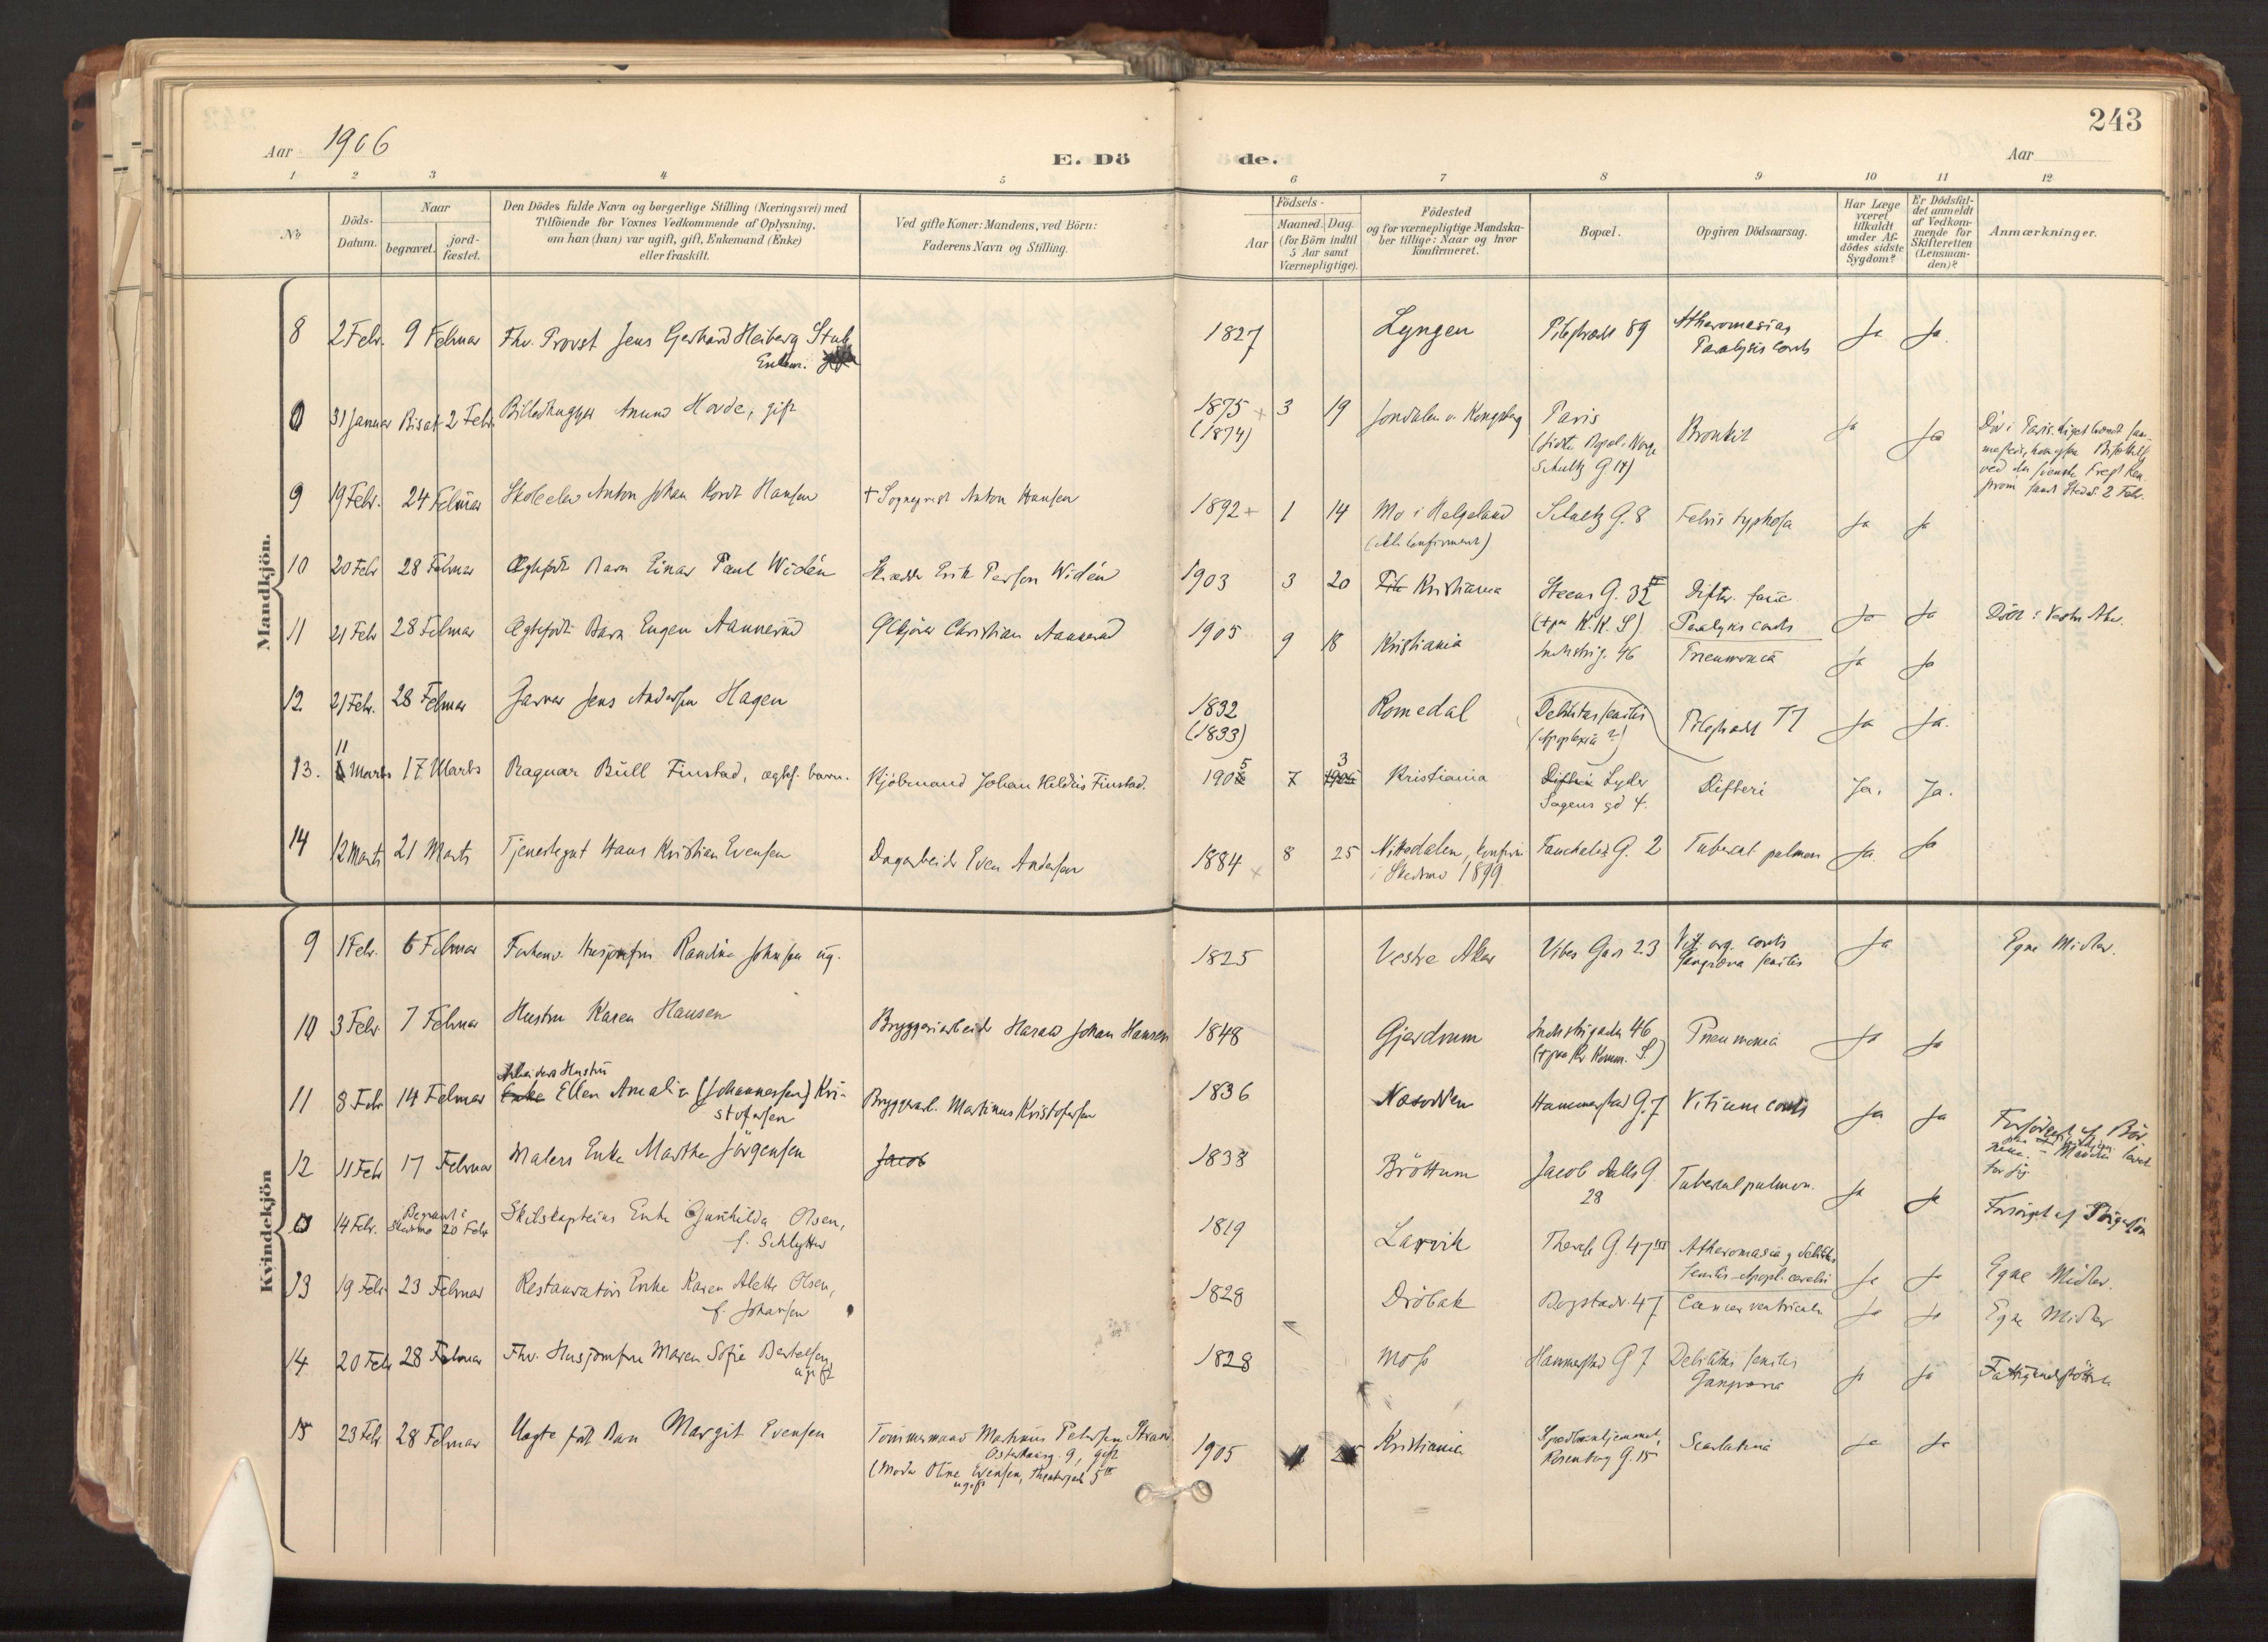 243
Aar 1906
E. Dö
de.
Aar
1 2 3 4 5 6 7 8 9 10 11 12
№
Döds-
Datum.
Naar
begravet.
jord-
fæstet.
Den Dödes fulde Navn og borgerlige Stilling (Næringsvei) med
Tilföiende for Voxnes Vedkommende af Oplysning,
om han (hun) var ugift, gift, Enkemand (Enke)
eller fraskilt.
Ved gifte Koner: Mandens, ved Börn:
Faderens Navn og Stilling.
Födsels-
Aar
Maaned. Dag.
(for Börn indtil
5 Aar samt
Værnepligtige).
Födested
og for værnepligtige Mandska-
ber tillige: Naar og hvor
konfirmeret.
Bopæl.
Opgiven Dödsaarsag.
Har Læge
været
tilkaldt
under Af-
dödes sidste
Sygdom?
Er Dödsfal-
det anmeldt
af Vedkom-
mende for
Skifteretten
(Lensman-
den)?
Anmærkninger.
Mandkjön.
8 2 Febr. 9 Februar Fhv. Provst Jens Gerhard Heiberg Stub 1827 Lyngen Pilestrædt 89 Atheromasias Ja Ja.
Enkem. Paralysis cordis
0 31 Januar Bisat 2 Febr. Billedhugger Anund Hovde, gift 1875 3 19 Jondalen v. Kongsberg Paris Bronkit Ja Ja Död i Paris. Liget brændt sam-
(1874) (sidste Bopæl i Norge
Schultz G. 14) ved den svenske
2 Febr.
9 19 Febr. 24 Februar Skoleelev Anton Johan Kordt Hansen + Sogneprest Anton Hansen 1892 1 14 Mo i Helgeland Schultz G. 8 Febris typhosa Ja Ja
(ikke konfirmeret)
10 20 Febr 28 Februar Ægtefödt Barn Einar Paul Widén Skrædder Erik Persson Widén 1903 3 20 Kristiania Steens G. 32 Difter. fauc. Ja Ja
(+ paa K. K. S) Paralysis cordis
11 21 Febr 28 Februar Ægtefödt Barn Eugen Aannerud Christian Aannerud 1905 9 18 Kristiania Industrig. 46 Pneumonia Ja Ja Död i Vestre Aker.
12. 21 Febr. 28 Februar Garver Jens Andersen Hagen 1832 Romedal Debilitas senilis Pilestrædt 77 Ja Ja.
(1833) (Apoplexia?)
13. 11 Marts 17 Marts Ragnar Büll Finstad, ægtef. barn. Kjöbmand Johan Hildris Finstad. 1905 7 3 Kristiania Difteri Lyder Difteri Ja. Ja.
Sagens gd 4.
14 12 Marts 21 Marts Tjenestegut Hans Kristian Evensen Dagarbeider Even Andersen 1884 8 25 Nittedalen, konfirm. Fauchalds G. 2 Tubercul pulmon Ja Ja
i Skedsmo 1899
Kvindekjön
9 1 Febr. 6 Februar Forhenv. Husjomfru Randine Johnsen ug. 1825 Vestre Aker Vibes Gade 23 Vit. org. cordis Ja Egne Midler.
Gangræna senilis
10 3 Febr. 7 Februar Hustru Karen Hansen Bryggeriarbeider Harald Johan Hansen 1848 Gjerdrum Industrigaden 46 Pneumonia Ja Ja
(+ paa Kr Komm. S.)
Arbeiders Hustru
11 8 Febr 14 Februar Enke Ellen Amalie (Johannessen) Kri- Bryggeriarb. Martinus Kristofersen 1836 Næsodden Hammerstad G. 7 Vitium cordis Ja Ja
stofersen
12 11 Febr 17 Februar Malers Enke Marthe Jörgensen Jacob 1838 Bröttum Jacob Aalls G. Tubercul pulmon. Ja Ja Forsörget af Bör-
28 nene.
for sig
0 14 Febr. Begravet i Skedsmo 20 Febr Skibskapteins Enke Gunhilda Olsen, 1819 Larvik Therese G. 47 III Atheromasia og Debilitas Ja Ja Forsörget af
f. Schlytter senilis - Apopl. cerebri Egne Midler.
13 19 Febr 23 Februar Restauratörs Enke Karen Alette Olsen, 1828 Dröbak Bogstadv. 47 Cancer ventriculi Ja Ja Egne Midler
f. Johansen
14 20 Febr 28 Februar Fhv. Husjomfru Maren Sofie Bertelsen, 1828 Moss Hammerstad G 7 Debilitas senilis Ja Ja Fattigunderstöttet
ugift Gangræna
15 23 Febr 28 Februar Uægte födt Barn Margit Evensen Tömmermand Markus Petersen Strand 1905 Kristiania Spædbarnhjemmet, Scarlatina Ja Ja
Österhausg. 9, gift Rosenborg G. 15
(Moder Oline Evensen, Theatergade 5 III
ugift